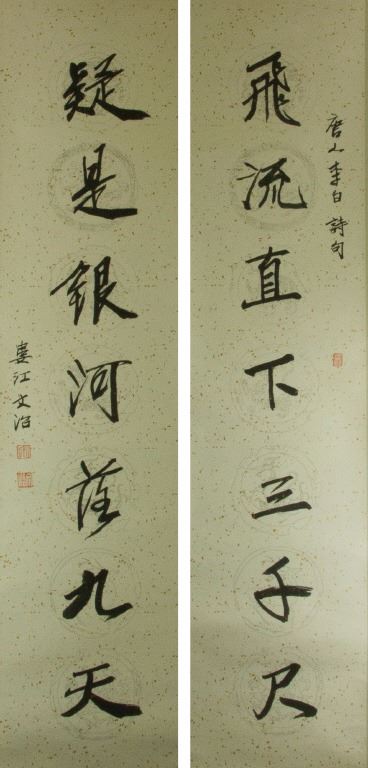 唐人李白詩句
飛流直下三千尺
疑是銀河落九天
婁江文治